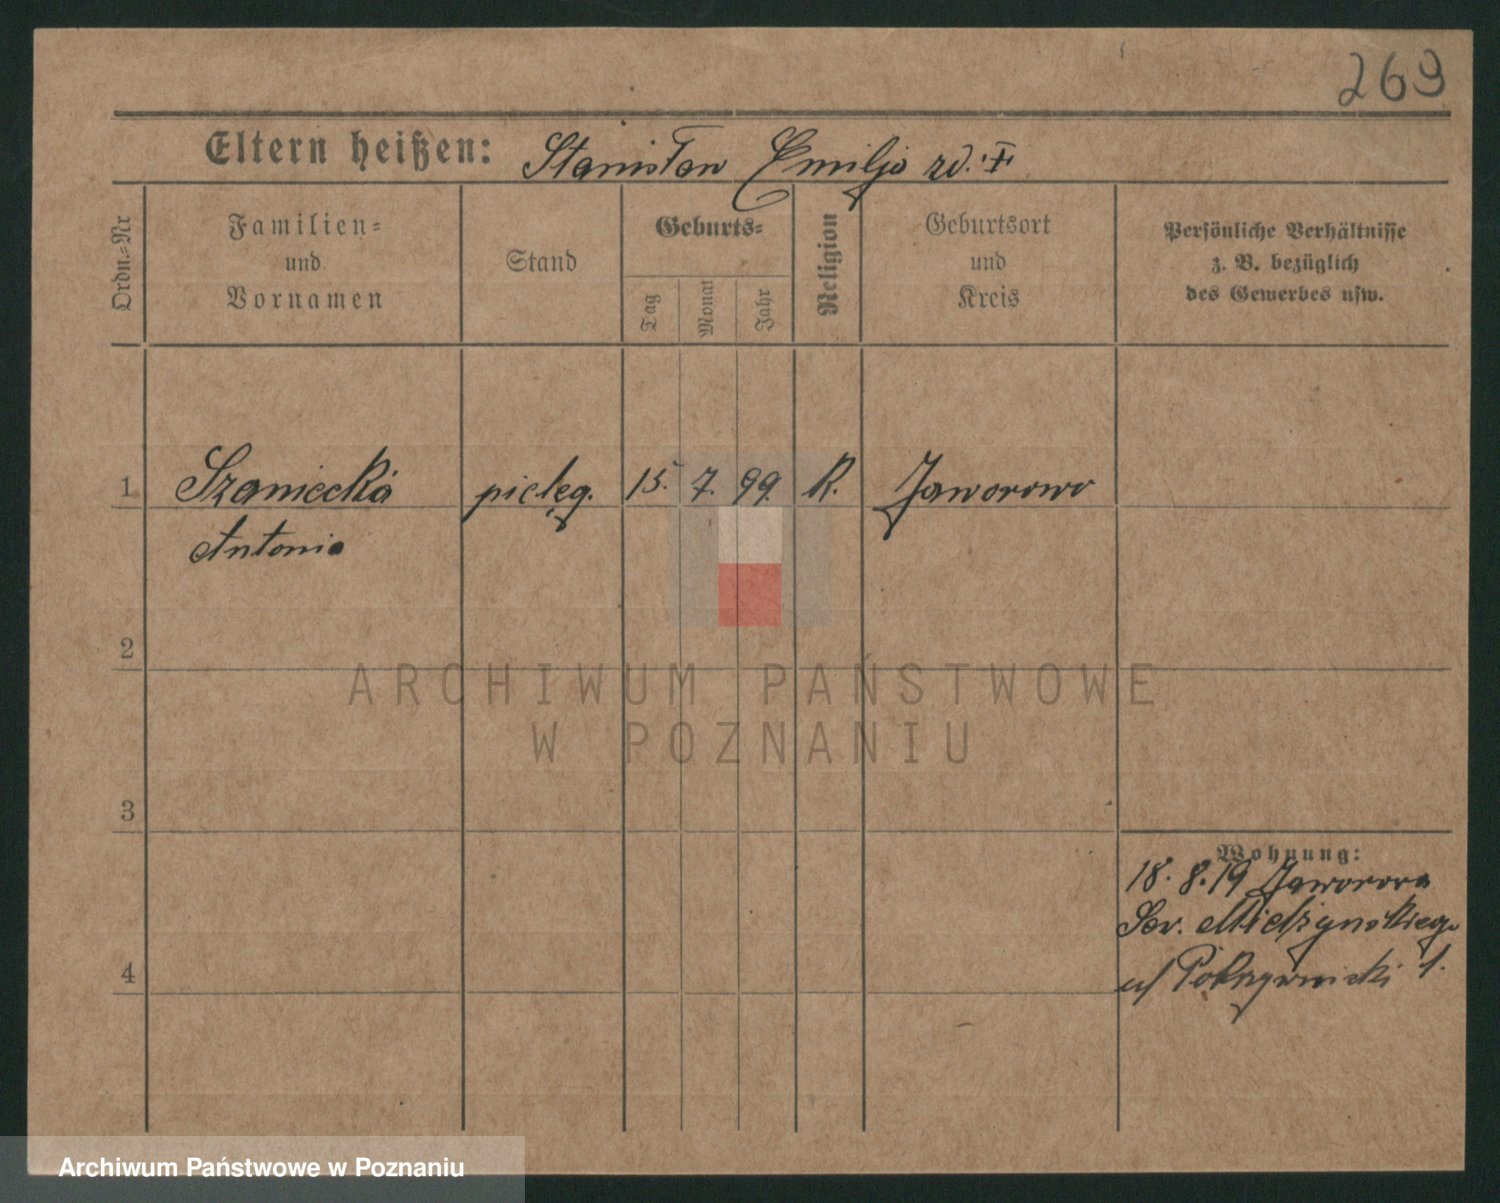 269
Eltern heißen: Stanisław Emilja
Ordn.=Nr
Familien=
und
Vornamen
Stand
Geburts=
Tag
Monat
Jahr
Religion
Geburtsort
und
Kreis
Persönliche Verhältnisse
z. B. bezüglich
des Gewerbes usw.
1 Szaniecka pielęg. 15. 7. 99. R. Jaworowo
Antonia
2
ARCHIWUM PAŃSTWOWE
W POZNANIU
3
Wohnung:
18. 8. 19 Jaworowa
Sew. Mielżyńskiego
u/ Pokrzywnicki 1.
4
Archiwum Państwowe w Poznaniu